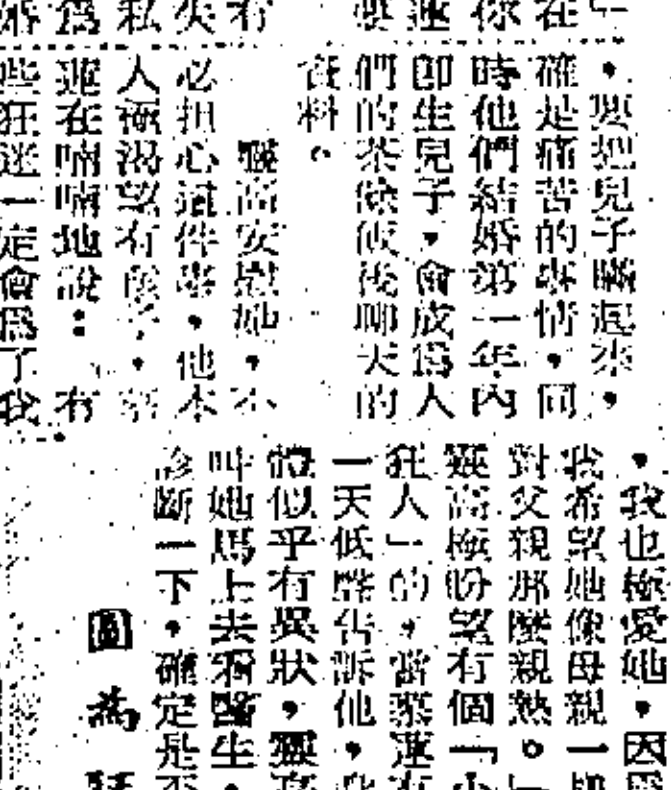 在
你
要蓮
有
失
私
為
婚
，要把兒子瞞起來，
確是痛苦的事情，同
時他們結婚第一年內
卽生兒子，會成爲人
們的茶餘飯後聊天的
資料。
靈高安慰她，不
必担心這件事，他本
人極渴望有孩子，
蓮在喃喃地說：有
些狂迷一定會爲了我
，我也極愛她，因
我希望她像母親一
對父親那麼親熱。
靈高極盼望有個「小
狂人」的，當蓮有
一天低聲告訴他，
體似乎有異狀，靈高
叫她馬上去看醫生，
診斷一下，確定是否
圖為